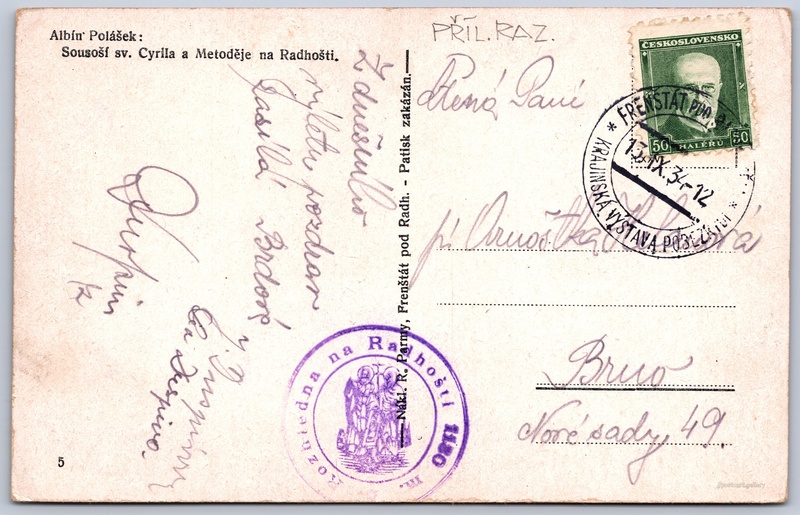 Albín Polášek:
Sousoší sv. Cyrila a Metoděje na Radhošti.
PŘÍL. RAZ.
ČESKOSLOVENSKO
50 HALÉŘŮ 50
* FRENŠTÁT POD
13.IX.34-12
KRAJINSKÁ VÝSTAVA POBEZKYDÍ *
Paní
Z dnešního
výletu pozdrav
zasílá
Nákl. R. Parmy, Frenštát pod Radh. - Patisk zakázán.
pí Arnoštka
Brno
Nové sady 49.
Rozhledna na Radhošti 1130 m.
5